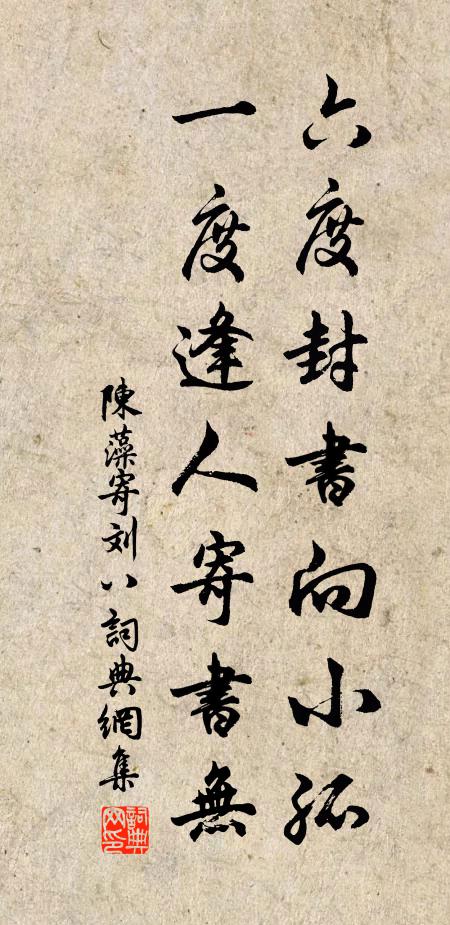 六度封书向小孤
一度逢人寄书無
陳藻寄刘八詞典網集
詞典网印